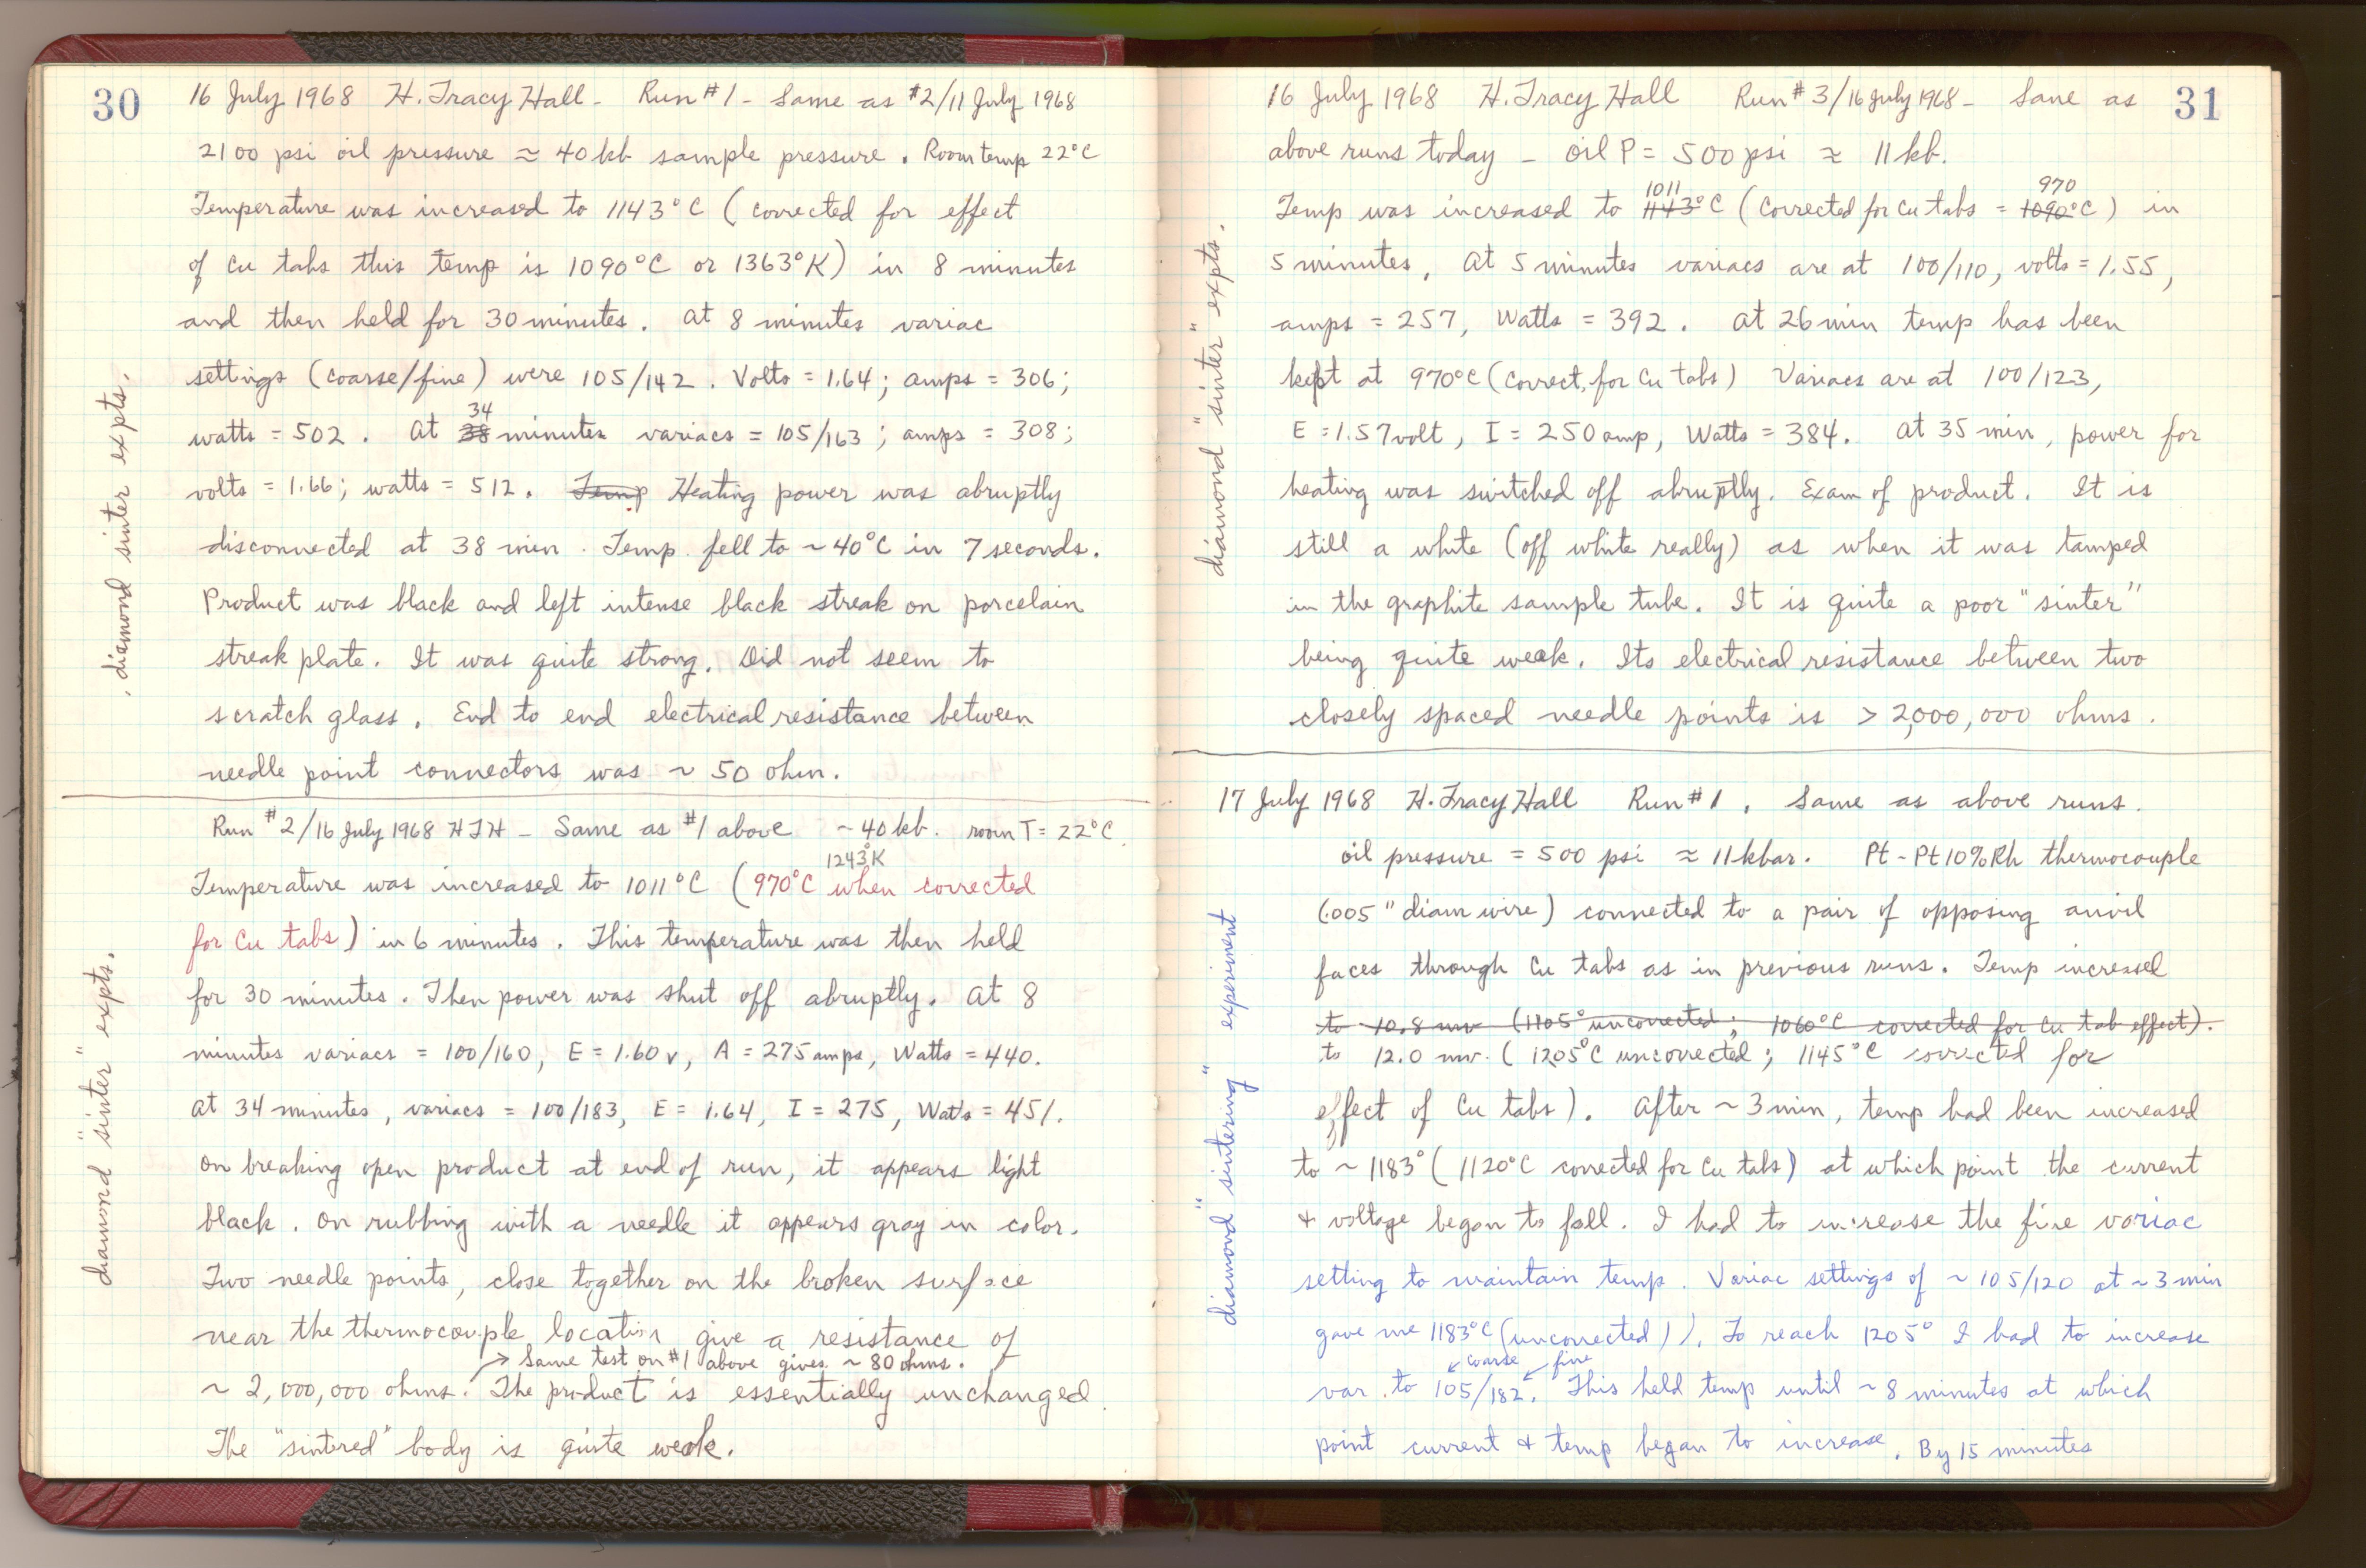 30
16 July 1968 H. Tracy Hall - Run #1 - Same as #2/11 July 1968
2100 psi oil pressure ≈ 40 kb sample pressure. Room temp 22°C
Temperature was increased to 1143°C (corrected for effect
of Cu tabs this temp is 1090°C or 1363°K) in 8 minutes
and then held for 30 minutes. At 8 minutes variac
settings (coarse/fine) were 105/142. Volts = 1.64; amps = 306;
34
watts = 502. At 38 minutes variacs = 105/163; amps = 308;
volts = 1.66; watts = 512. Temp Heating power was abruptly
disconnected at 38 min. Temp. fell to ~40°C in 7 seconds.
Product was black and left intense black streak on porcelain
streak plate. It was quite strong. Did not seem to
scratch glass. End to end electrical resistance between
needle point connectors was ~ 50 ohm.
diamond sinter expts.
Run #2/16 July 1968 HTH - Same as #1 above ~40 kb. room T = 22°C
1243°K
Temperature was increased to 1011°C (970°C when corrected
for Cu tabs) in 6 minutes. This temperature was then held
for 30 minutes. Then power was shut off abruptly. At 8
minutes variacs = 100/160, E = 1.60 v, A = 275 amps, Watts = 440.
At 34 minutes, variacs = 100/183, E = 1.64, I = 275, Watts = 451.
On breaking open product at end of run, it appears light
black. On rubbing with a needle it appears gray in color.
Two needle points, close together on the broken surface
near the thermocouple location give a resistance of
→ Same test on #1 above gives ~ 80 ohms.
~ 2,000,000 ohms. The product is essentially unchanged.
The "sintered" body is quite weak.
diamond "sinter" expts.
31
16 July 1968 H. Tracy Hall Run #3/16 July 1968 - Same as
above runs today - oil P = 500 psi ≈ 11 kb.
1011 970
Temp was increased to 1143°C (Corrected for Cu tabs = 1090°C) in
5 minutes. At 5 minutes variacs are at 100/110, volts = 1.55,
amps = 257, Watts = 392. At 26 min temp has been
kept at 970°C (Correct. for Cu tabs) Variacs are at 100/123,
E = 1.57 volt, I = 250 amp, Watts = 384. At 35 min, power for
heating was switched off abruptly. Exam of product. It is
still a white (off white really) as when it was tamped
in the graphite sample tube. It is quite a poor "sinter"
being quite weak. Its electrical resistance between two
closely spaced needle points is > 2,000,000 ohms.
diamond "sinter" expts.
17 July 1968 H. Tracy Hall Run #1. Same as above runs.
oil pressure = 500 psi ≈ 11 kbar. Pt-Pt10%Rh thermocouple
(.005" diam wire) connected to a pair of opposing anvil
faces through Cu tabs as in previous runs. Temp increased
to 10.8 mv (1105° uncorrected; 1060°C corrected for Cu tab effect).
to 12.0 mv. (1205°C uncorrected; 1145°C corrected for
effect of Cu tabs). After ~3 min, temp had been increased
to ~ 1183° (1120°C corrected for Cu tabs) at which point the current
& voltage began to fall. I had to increase the fine variac
setting to maintain temp. Variac settings of ~ 105/120 at ~3 min
gave me 1183°C (uncorrected)). To reach 1205° I had to increase
coarse fine
var. to 105/182. This held temp until ~8 minutes at which
point current & temp began to increase. By 15 minutes
diamond "sintering" experiment